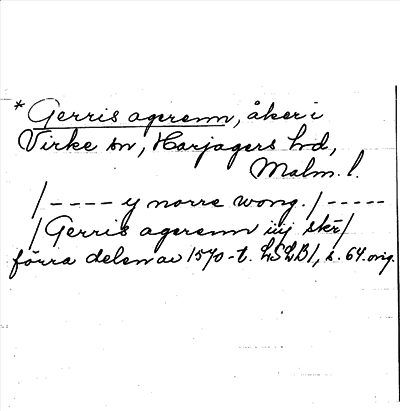 * Gerris agerenn, åker i
Virke sn, Harjagers hd,
Malm. l.
/ - - - - y norre wong. / - - - - -
/ Gerris agerenn iiij skr̄ /
förra delen av 1570-t. LSLB1, s. 64. orig.